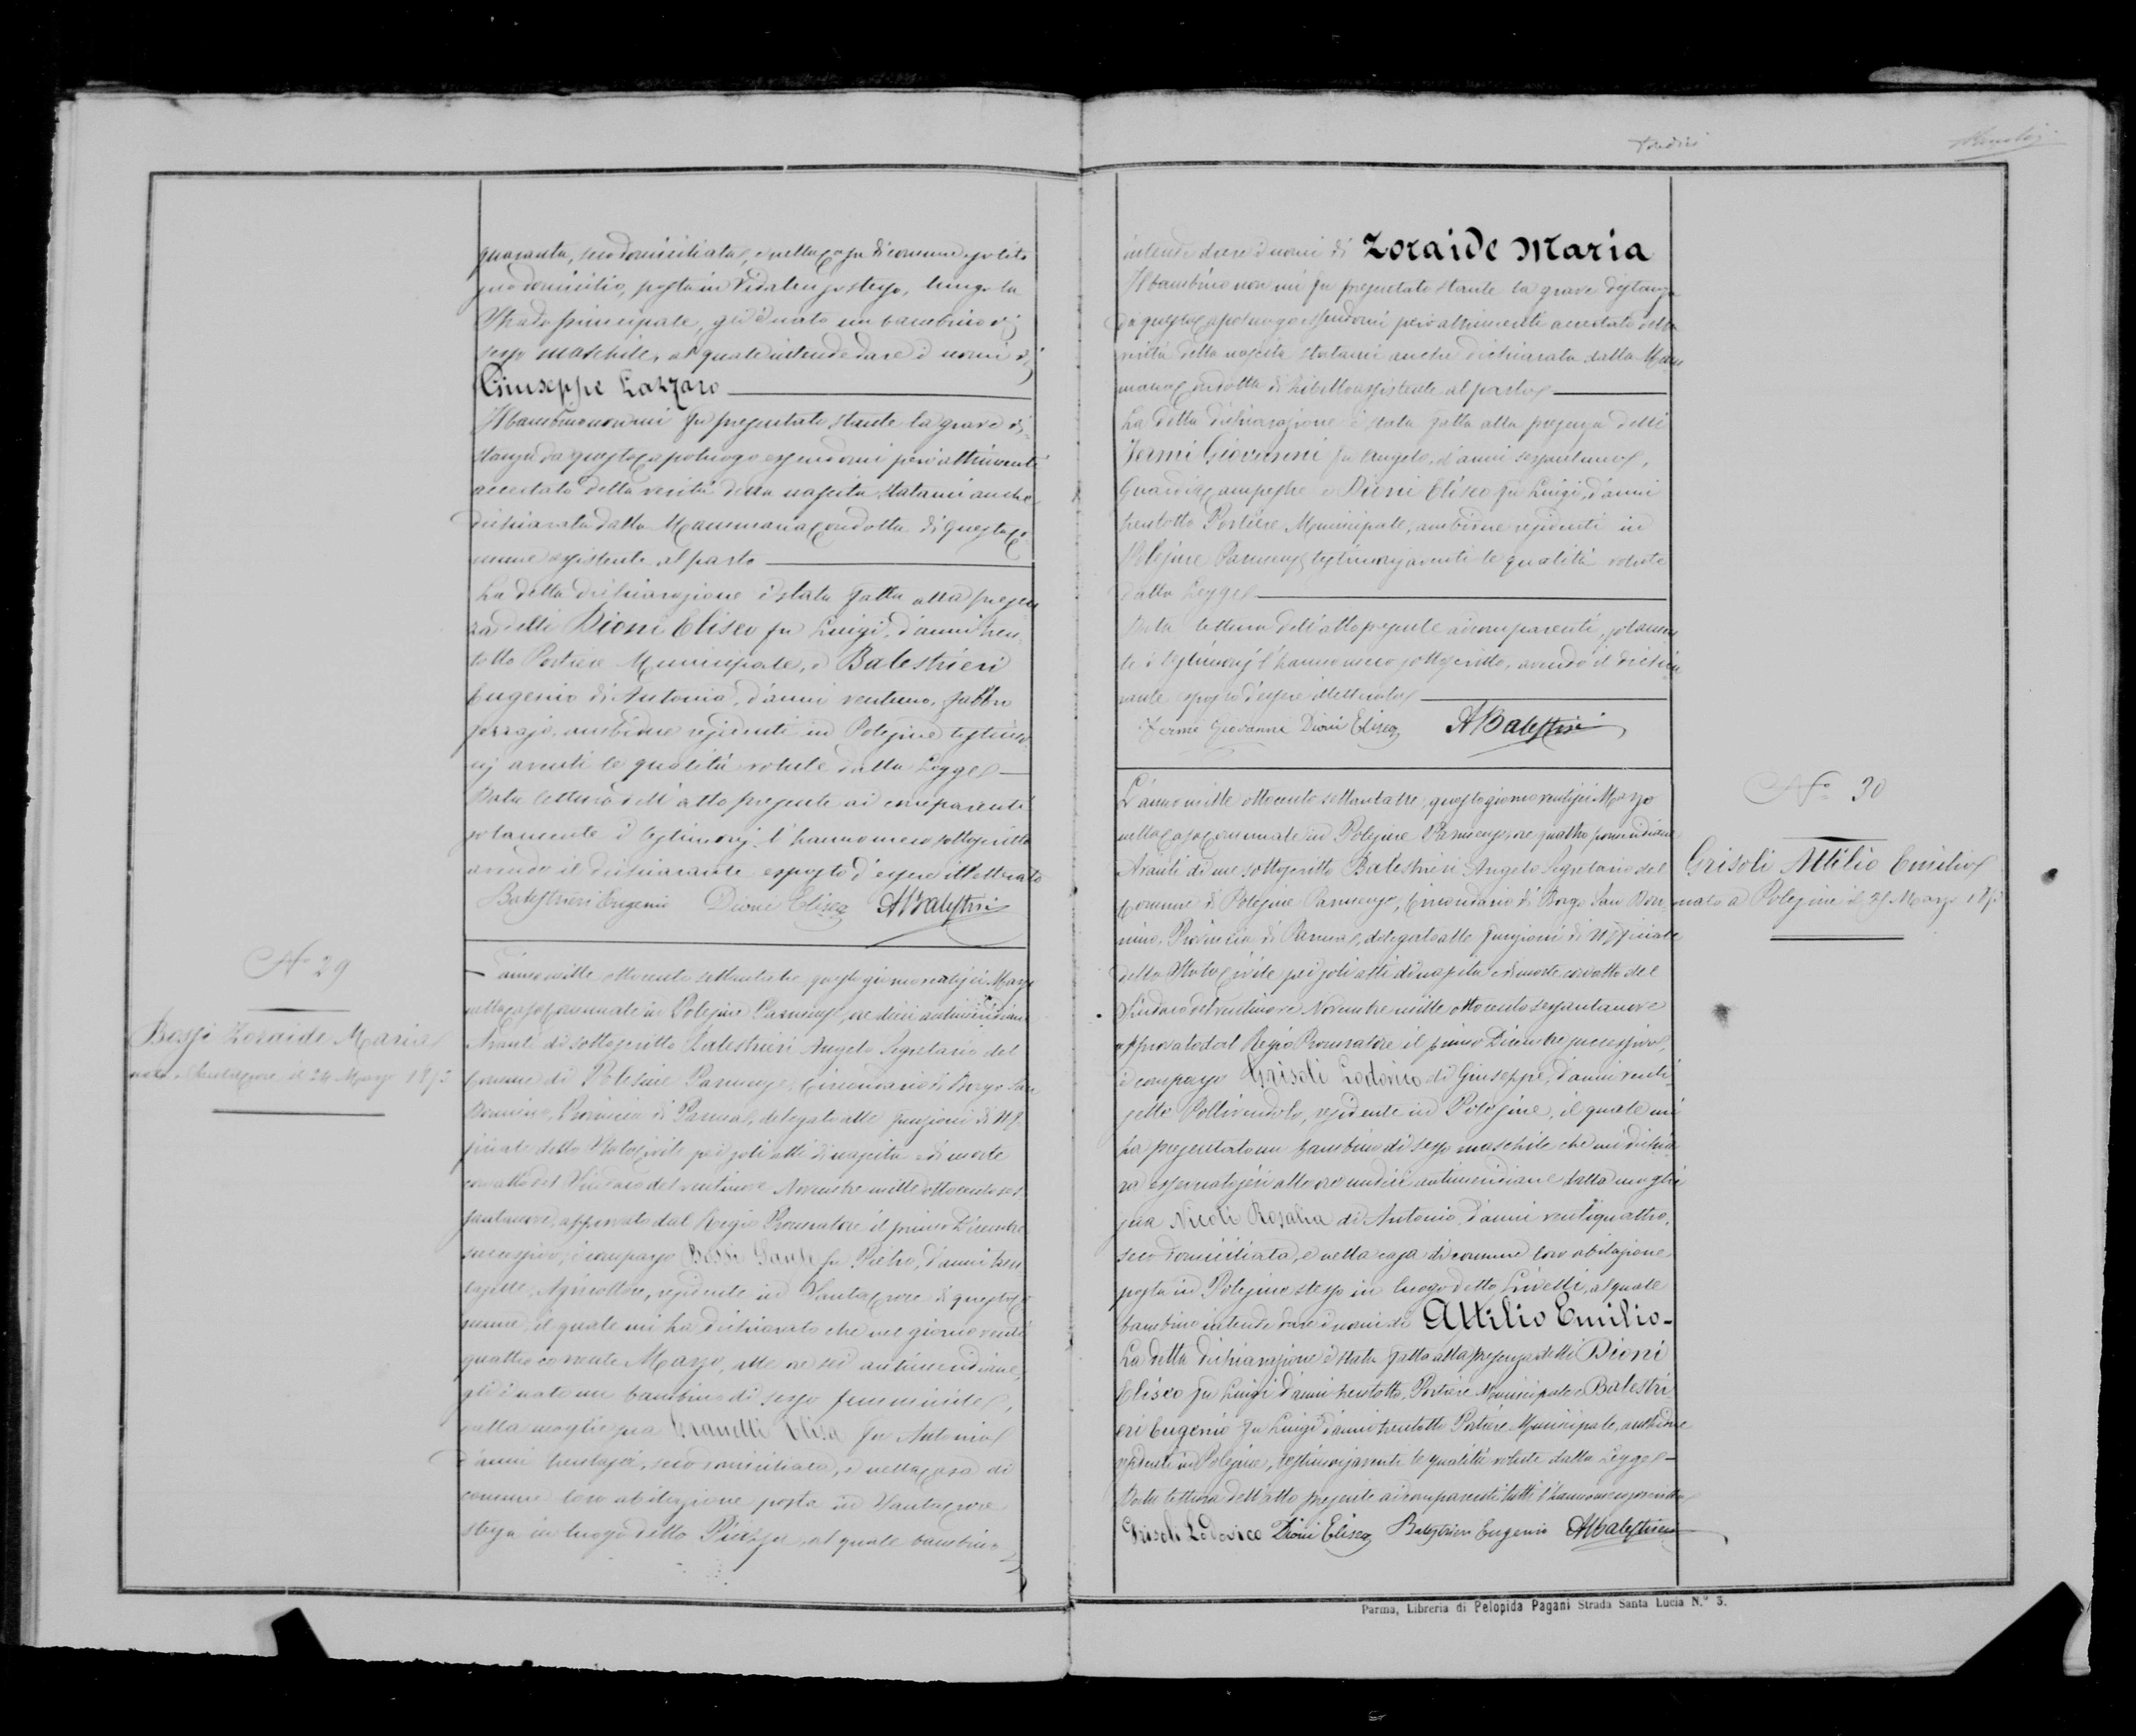 Tredici
quaranta, seco domiciliata, e nella casa di comune solito
suo domicilio, posta in Vidalenzo stesso, lungo la
Strada principale, gli è nato un bambino di
sesso maschile, al quale intende dare i nomi di
Giuseppe Lazzaro
Il bambino non mi fu presentato stante la grave di-
stanza da questo Capoluogo essendomi però altrimenti
accertato della verità della nascita, statami anche
dichiarata dalla Mammana Condotta di questo Co-
mune assistente al parto
La detta dichiarazione è stata fatta alla presen
za delli Dioni Eliseo fu Luigi, d'anni tren-
totto Portiere Municipale, e Balestrieri
Eugenio di Antonio, d'anni ventuno, fabbro
ferrajo, ambidue residenti in Polesine testimo-
nj aventi le qualità volute dalla Legge
Data lettura dell'atto presente ai comparenti
solamente i testimonj l'hanno meco sottoscritto
avendo il dichiarante esposto d'essere illetterato
Balestrieri Eugenio Dioni Eliseo ABalestrieri
No 29
Bossi Zoraide Maria
nata a Santacroce il 24 Marzo 1873
L'anno mille ottocento settantatre, questo giorno ventisei Marzo
nella Casa Comunale in Polesine Parmense, ore dieci antimeridiane
Avanti di sottoscritto Balestrieri Angelo Segretario del
Comune di Polesine Parmense, Circondario di Borgo San
Donnino, Provincia di Parma, delegato alle funzioni di Uf
ficiale dello Stato Civile pei soli atti di nascita e di morte
con atto del Sindaco del ventinove Novembre mille ottocento ses
santanove, approvato dal Regio Procuratore il primo Dicembre
successivo, è comparso Bossi Sante fu Pietro, d'anni tren
tasette, Agricoltore, residente in Santacroce di questo Co
mune, il quale mi ha dichiarato che nel giorno venti
quattro corrente Marzo, alle ore sei antimeridiane,
gli è nato un bambino di sesso femminile,
dalla moglie sua Granelli Elisa fu Antonio
d'anni trentasei, seco domiciliata, e nella casa di
comune loro abitazione posta in Santacroce
stessa in luogo detto Piazza, al quale bambino
intende dare i nomi di Zoraide Maria
Il bambino non mi fu presentato stante la grave distanza
da questo Capoluogo essendomi però altrimenti accertato della
verità della nascita statami anche dichiarata dalla Mam
mana Condotta di Zibello assistente al parto
La detta dichiarazione è stata fatta alla presenza delli
Fermi Giovanni fu Angelo, d'anni sessantuno,
Guardia Campestre e Dioni Eliseo fu Luigi, d'anni
trentotto Portiere Municipale, ambidue residenti in
Polesine Parmense testimonj aventi le qualità volute
dalla Legge
Data lettura dell'atto presente ai comparenti, solamen
te i testimonj l'hanno meco sottoscritto, avendo il dichia
rante esposto d'essere illetterato
Fermi Giovanni Dioni Eliseo ABalestrieri
No 30
Grisoli Attilio Emilio
nato a Polesine il Marzo 1873
L'anno mille ottocento settantatre, questo giorno ventisei Marzo
nella Casa Comunale in Polesine Parmense, ore quattro pomeridiane
Avanti di me sottoscritto Balestrieri Angelo Segretario del
Comune di Polesine Parmense, Circondario di Borgo San Don
nino, Provincia di Parma, delegato alle funzioni di Ufficiale
dello Stato Civile pei soli atti di nascita e di morte con atto del
Sindaco del ventinove Novembre mille ottocento sessantanove
approvato dal Regio Procuratore il primo Dicembre successivo,
è comparso Grisoli Lodovico di Giuseppe, d'anni venti
sette Pollivendolo, residente in Polesine, il quale mi
ha presentato un bambino di sesso maschile che mi dichia
ra esser nato jeri alle ore undici antimeridiane dalla moglie
sua Nicoli Rosalia di Antonio, d'anni ventiquattro,
seco domiciliata, e nella casa di comune loro abitazione
posta in Polesine stesso in luogo detto Livelli, al quale
bambino intende dare i nomi di Attilio Emilio
La detta dichiarazione è stata fatta alla presenza delli Dioni
Eliseo fu Luigi d'anni trentotto, Portiere Municipale e Balestri
eri Eugenio fu Luigi d'anni trentotto Portiere Municipale, ambidue
residenti in Polesine, testimonj aventi le qualità volute dalla Legge
Data lettura dell'atto presente ai comparenti tutti l'hanno meco
Grisoli Lodovico Dioni Eliseo Balestrieri Eugenio ABalestrieri
Parma, Libreria di Pelopida Pagani Strada Santa Lucia N.° 3.